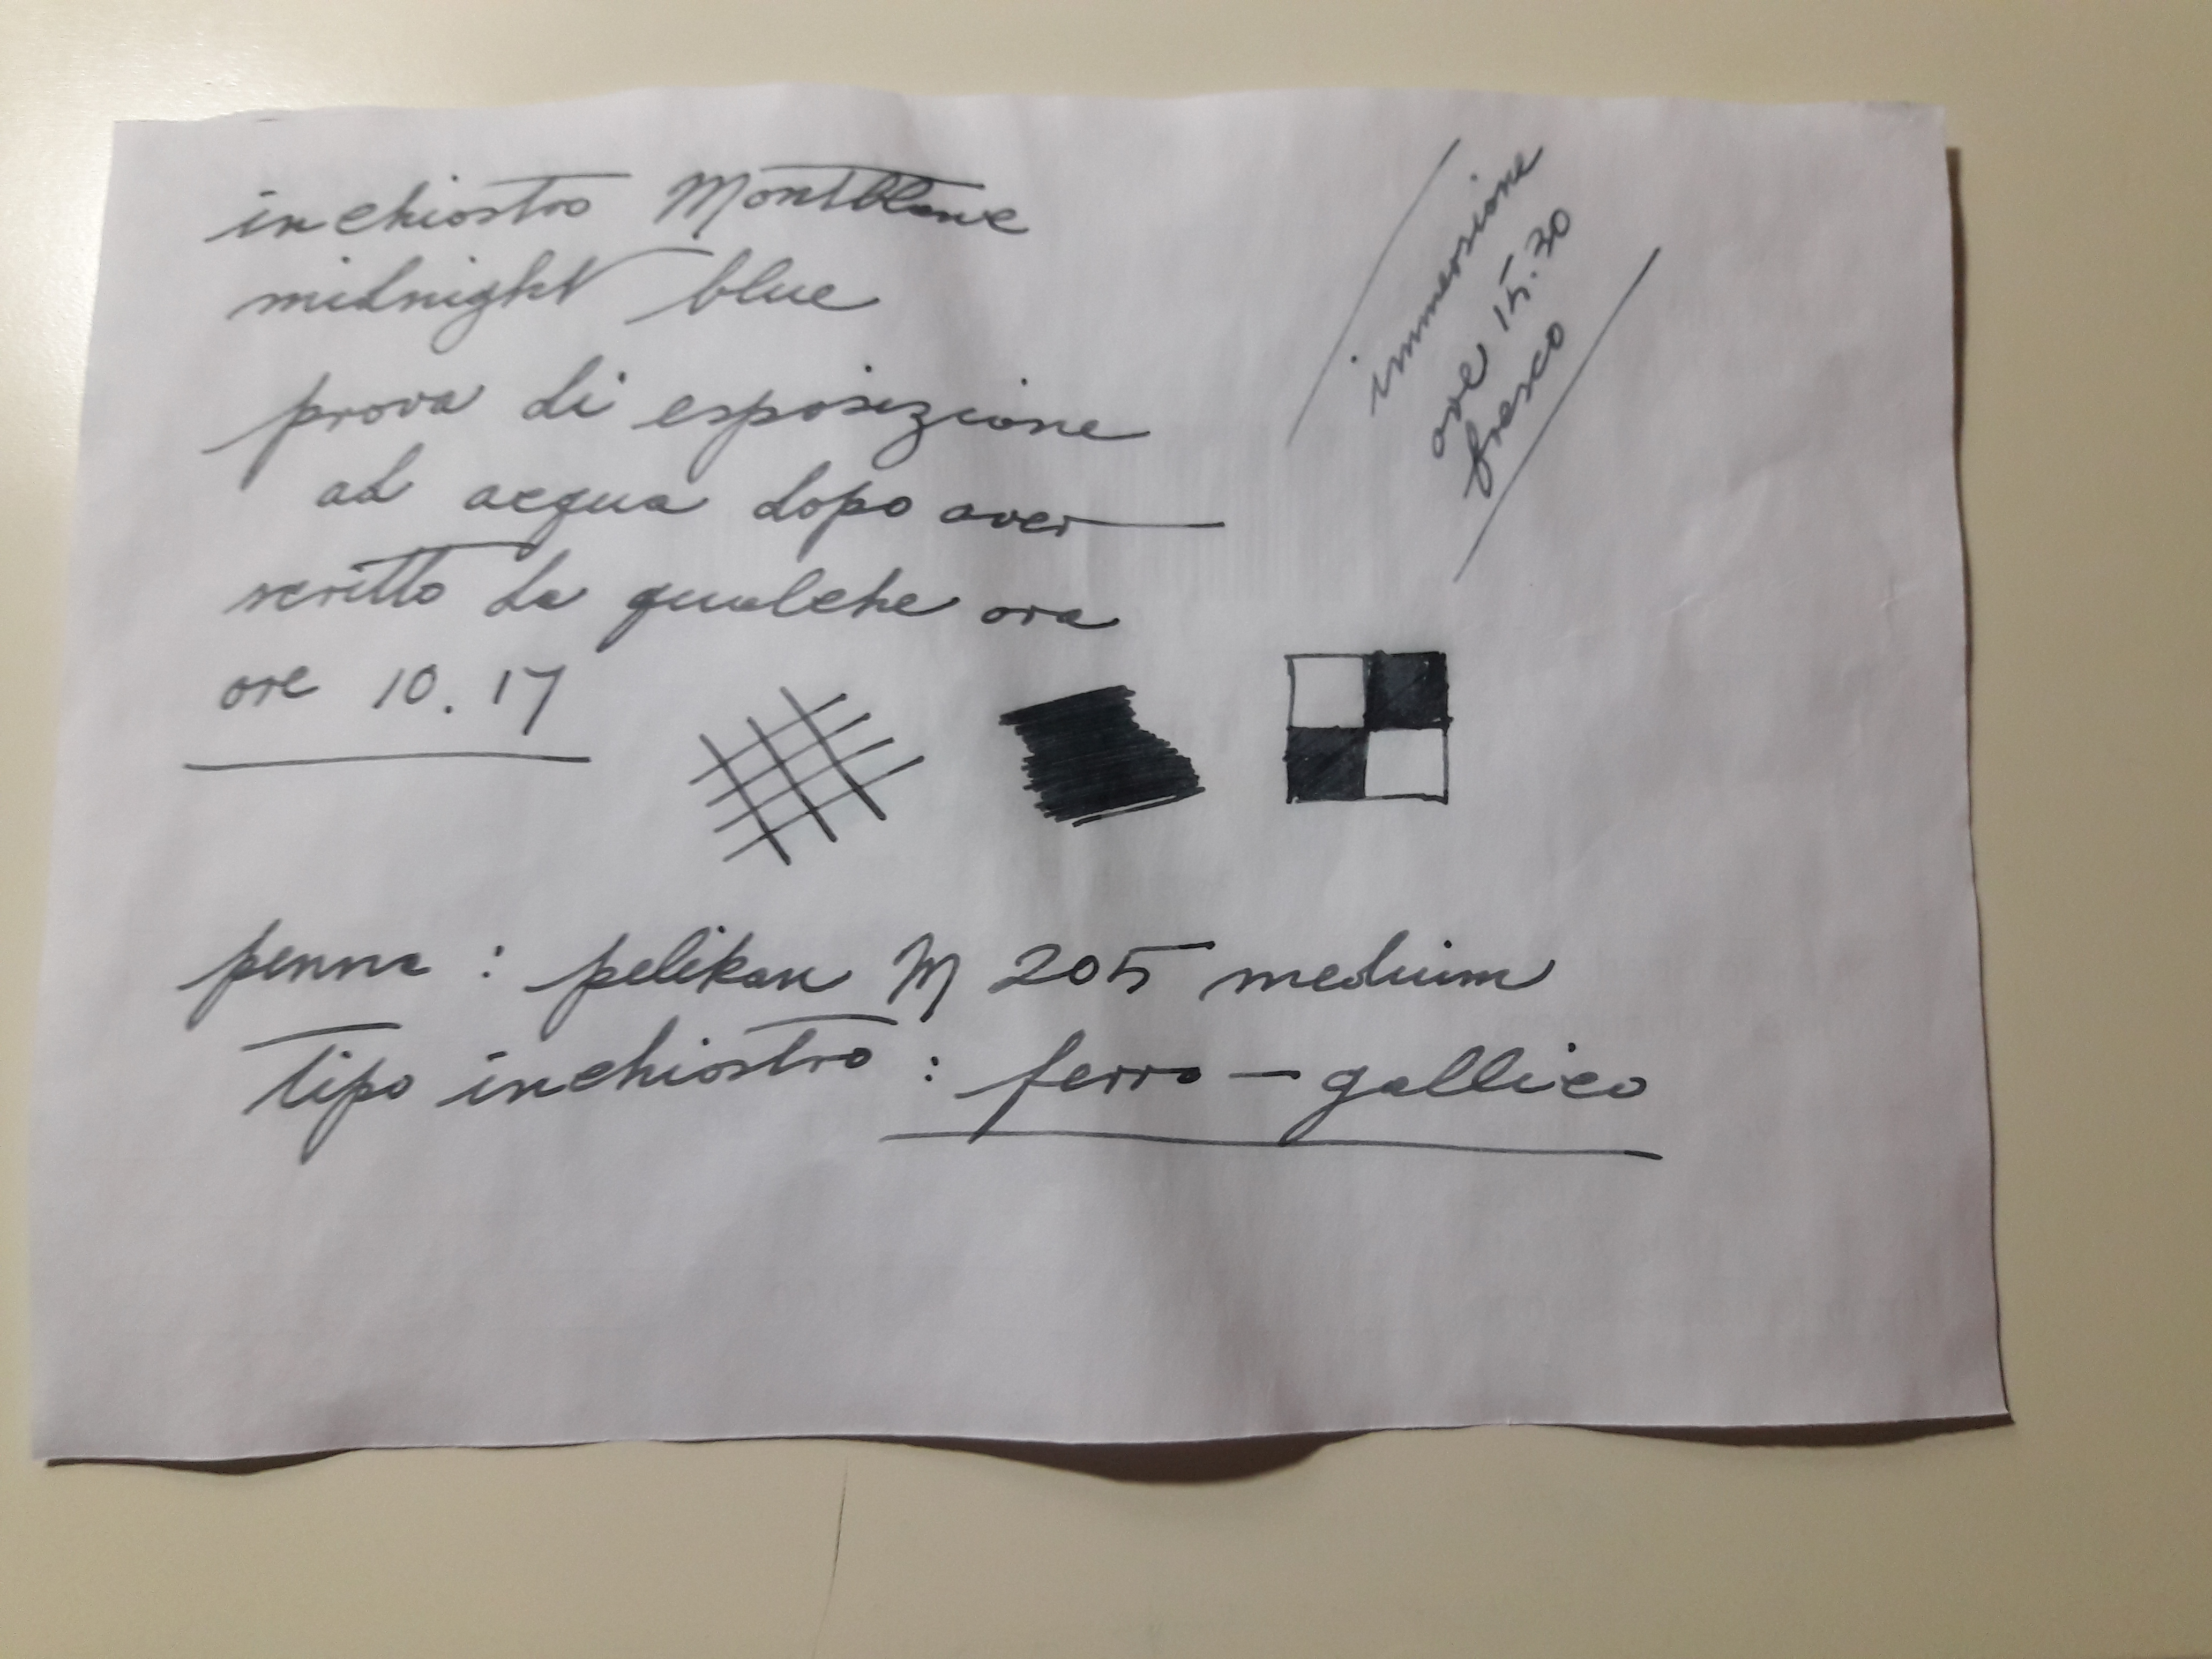 inchiostro Montblanc
midnight blue
prova di esposizione
ad acqua dopo aver
scritto da qualche ora
ore 10.17
immersione
ore 15.30
fresco
penna : pelikan M 205 medium
tipo inchiostro : ferro - gallico